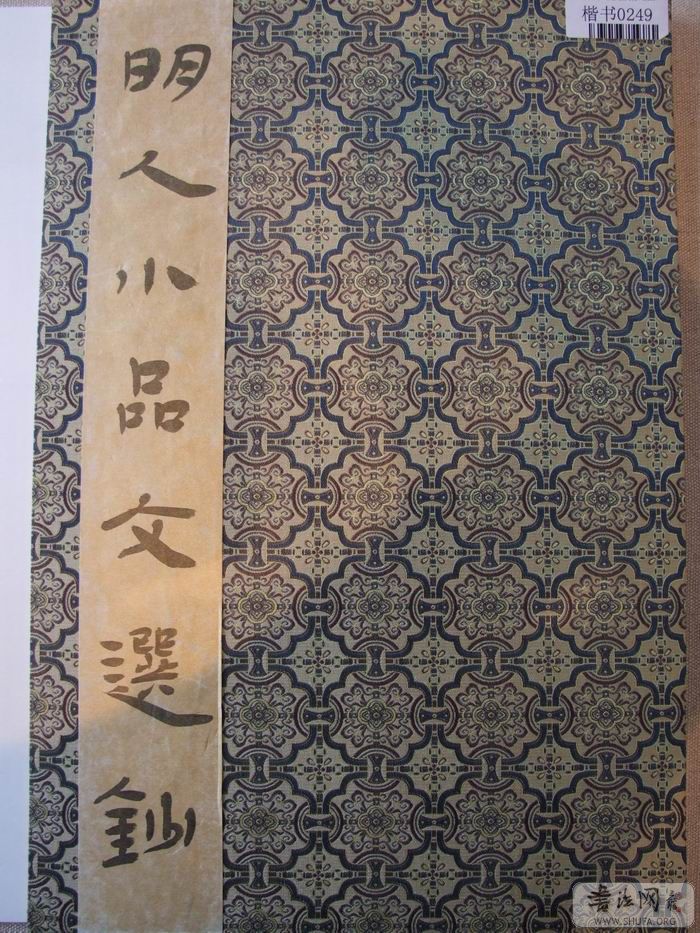 楷书0249
明人小品文選鈔
书法网
WWW.SHUFA.ORG